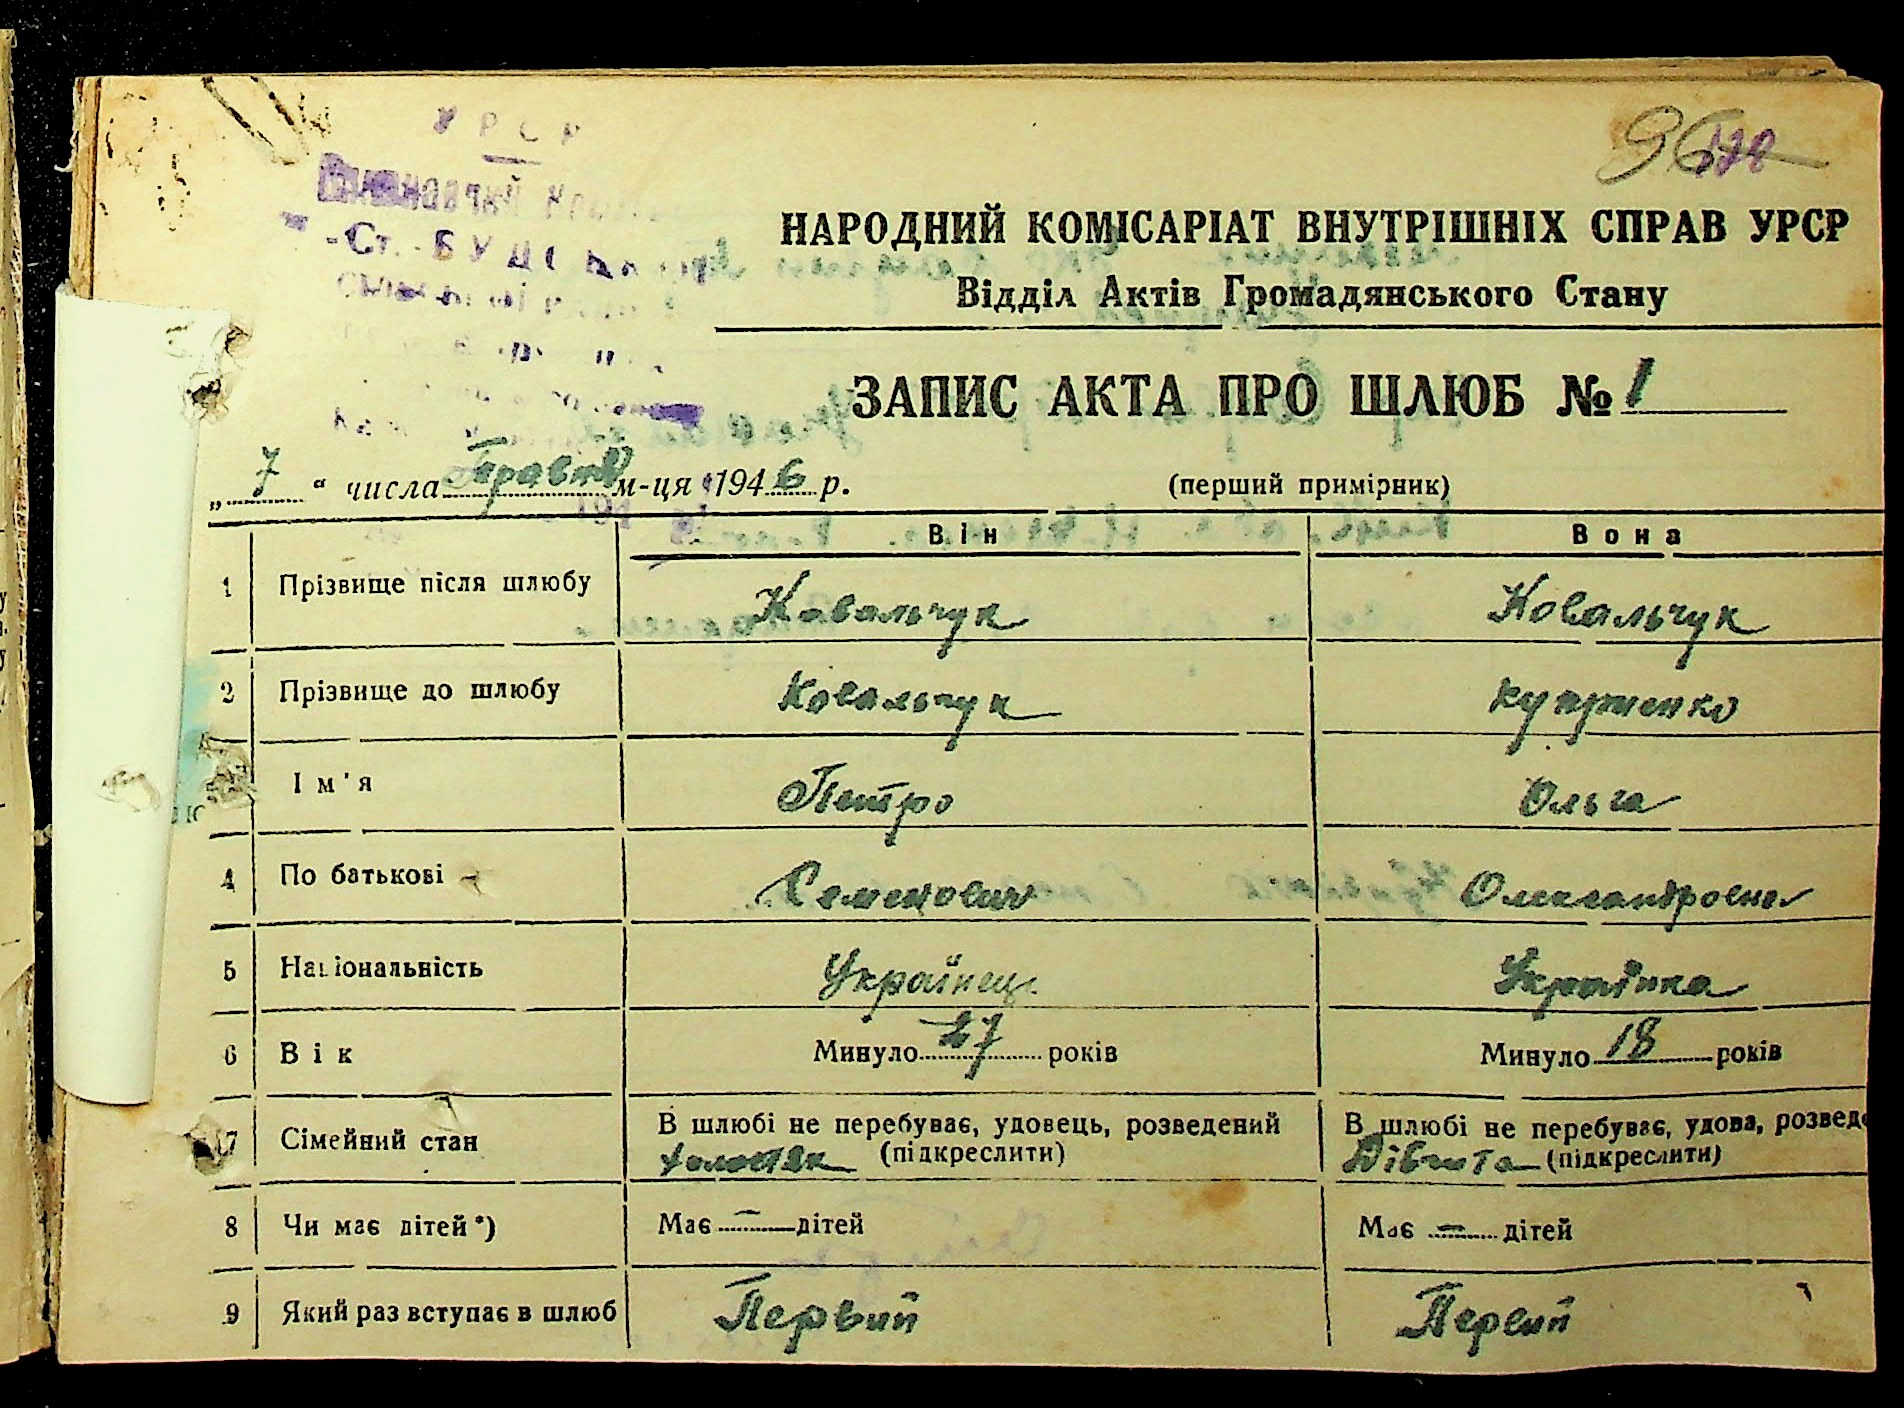 УРСР
96 178
НАРОДНИЙ КОМІСАРІАТ ВНУТРІШНІХ СПРАВ УРСР
Відділ Актів Громадянського Стану
ЗАПИС АКТА ПРО ШЛЮБ № 1
„7“ числа Травня м-ця 1946 р. (перший примірник)
Він Вона
1 Прізвище після шлюбу Ковальчук Ковальчук
2 Прізвище до шлюбу Ковальчук
Ім'я Петро Ольга
4 По батькові Семенович Олександровна
5 Національність Українець Українка
6 Вік Минуло 27 років Минуло 18 років
7 Сімейний стан В шлюбі не перебуває, удовець, розведений В шлюбі не перебуває, удова, розвед
холостяк (підкреслити) (підкреслити)
8 Чи має дітей*) Має — дітей Має — дітей
9 Який раз вступає в шлюб Первий Первий